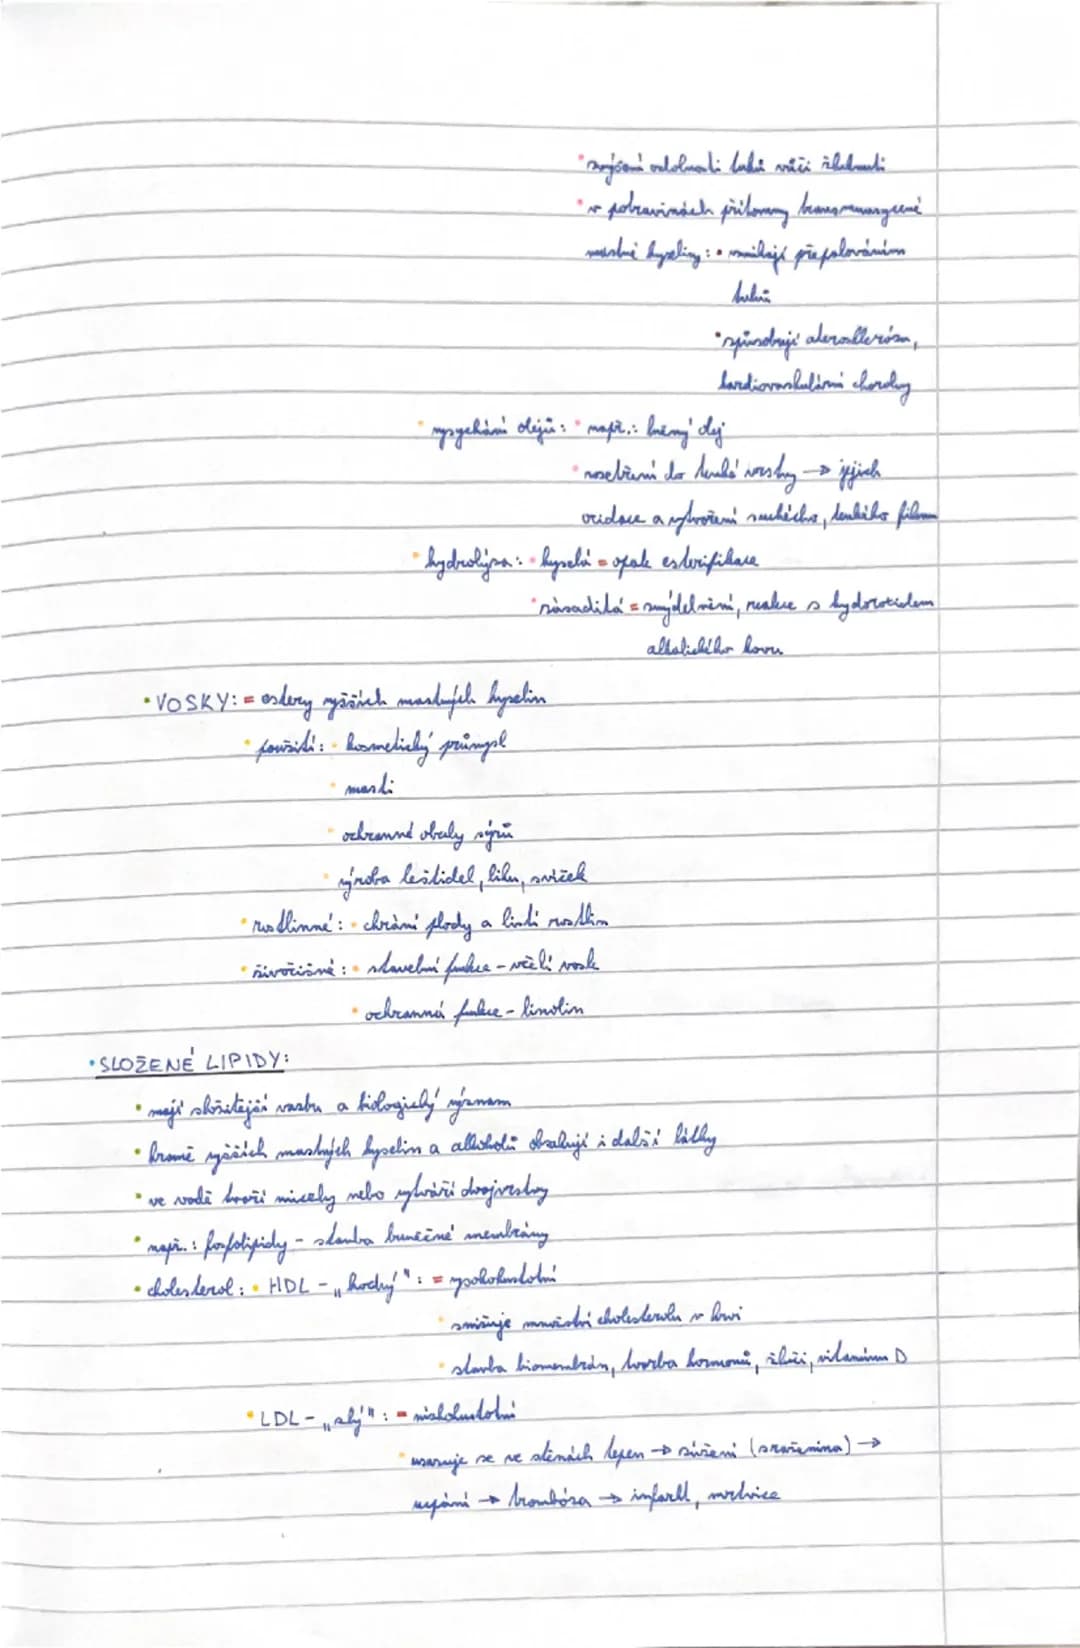 • zvýšení odolnosti tuků vůči žluknutí
• v potravinách přítomny transnenasycené
mastné kyseliny: • vznikají přepalováním
tuků
• způsobují aterosklerózu,
kardiovaskulární choroby
• vysychání olejů: • např.: lněný olej
• rozetření do tenké vrstvy → jejich
oxidace a vytvoření suchého, tenkého filmu
• hydrolýza: • kyselá = opak esterifikace
• zásaditá = zmýdelnění, reakce s hydroxidem
alkalického kovu
• VOSKY: = estery vyšších mastných kyselin
• použití: • kosmetický průmysl
• masti
• ochranné obaly sýrů
• výroba leštidel, líhu, svíček
• rostlinné: • chrání plody a listí rostlin
• živočišné: • stavební funkce - včelí vosk
• ochranná funkce - linolin
• SLOŽENÉ LIPIDY:
• mají složitější vazbu a biologický význam
• kromě vyšších mastných kyselin a alkoholů obsahují i další látky
• ve vodě tvoří micely nebo vytváří dvojvrstvy
• např.: fosfolipidy - stavba buněčné membrány
• cholesterol: • HDL - „hodný": = vysokohustotní
• snižuje množství cholesterolu v krvi
• stavba biomembrán, tvorba hormonů, žluči, vitamínu D
• LDL - „zlý": = nízkohustotní
• usazuje se ve stěnách tepen → zúžení (sraženina) →
ucpání → trombóza → infarkt, mrtvice